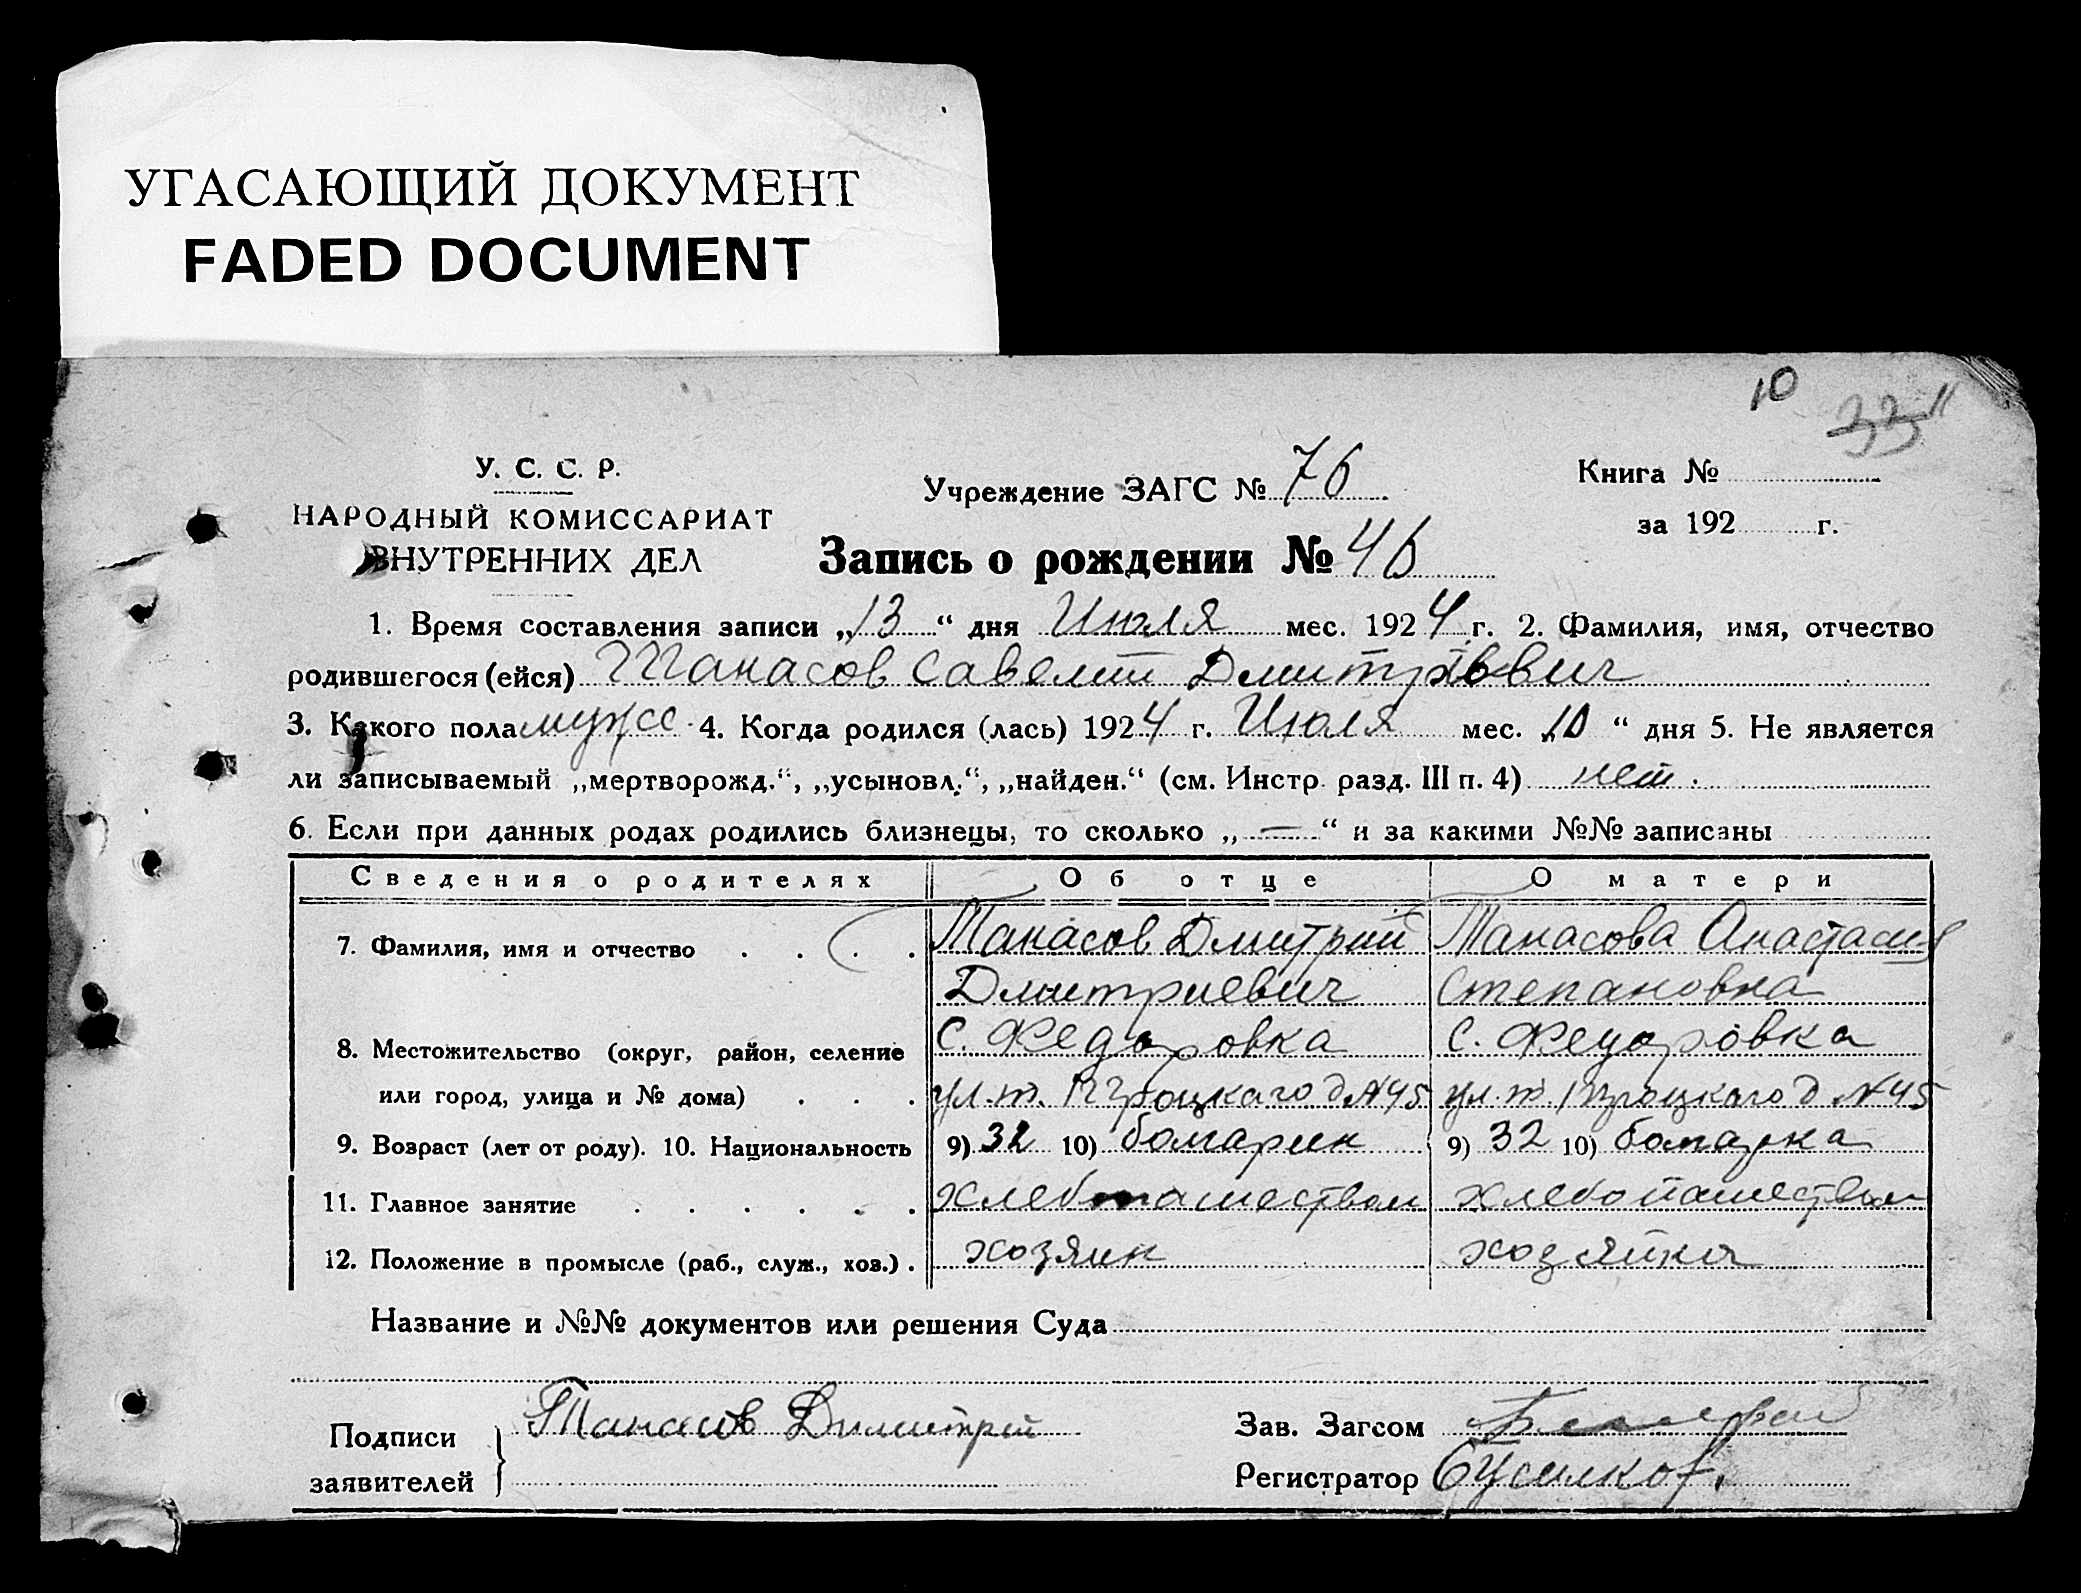 УГАСАЮЩИЙ ДОКУМЕНТ
FADED DOCUMENT
10
33
У. С. С. Р.
НАРОДНЫЙ КОМИССАРИАТ
ВНУТРЕННИХ ДЕЛ
Учреждение ЗАГС № 76
Книга №
за 192 г.
Запись о рождении № 46
1. Время составления записи „13“ дня Июля мес. 1924 г. 2. Фамилия, имя, отчество
родившегося (ейся) Танасов Савелий Дмитриевич
3. Какого пола мужс 4. Когда родился (лась) 1924 г. Июля мес. „10“ дня 5. Не является
ли записываемый „мертворожд.“, „усыновл.“, „найден.“ (см. Инстр. разд. III п. 4) нет.
6. Если при данных родах родились близнецы, то сколько „—“ и за какими №№ записаны
Сведения о родителях Об отце О матери
7. Фамилия, имя и отчество . . . . Танасов Дмитрий Танасова Анастасия
Дмитриевич Степановна
8. Местожительство (округ, район, селение с. Федоровка с. Федоровка
или город, улица и № дома) . . . ул. т. Троцкаго д №45 ул. т. Троцкаго д №45
9. Возраст (лет от роду). 10. Национальность 9) 32 10) болгарин 9) 32 10) болгарка
11. Главное занятие . . . . . . хлебопашеством хлебопашеством
12. Положение в промысле (раб., служ., хоз.) . хозяин хозяйка
Название и №№ документов или решения Суда
Подписи
заявителей
Танасов Димитрей
Зав. Загсом
Регистратор